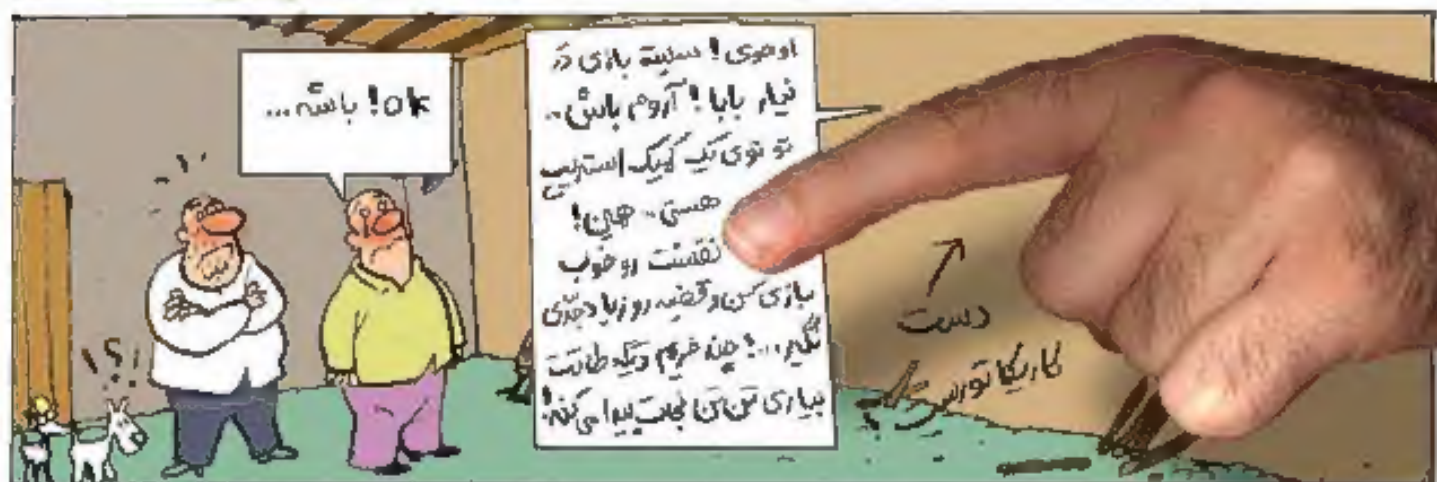 اوهوی! سینه بازی در
نیار بابا! آروم باش..
تو توی یک کمیک استریپ
هستی.. همین!
نقشت رو خوب
بازی کن و قضیه رو زیاد جدی
نگیر...! چند فریم دیگه طاقت
بیاری تن تن نجات پیدا می کنه!
ok! باشه...
!؟!
دست
کاریکاتوریست